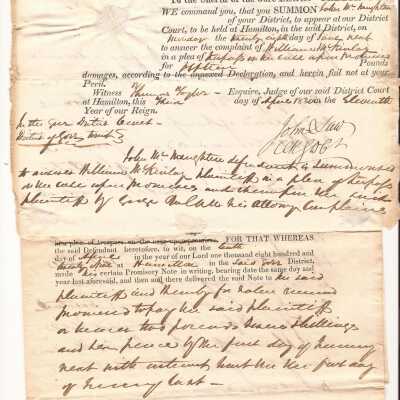 WE command you, that you SUMMON John McNaughten
of your District, to appear at our District
Court, to be held at Hamilton, in the said District, on
Monday the day of June next
to answer the complaint of William McKinlay
in a plea of Trespass on the case upon Promises
for Fifteen Pounds
damages, according to the annexed Declaration, and herein fail not at your
Peril.
Witness Thomas Taylor Esquire, Judge of our said District Court
at Hamilton, this Third day of April 1830 the Eleventh
Year of our Reign.
John Law
In the Gore District Court
District of Gore, to wit
John McNaughten defendant is summoned
to answer William McKinlay plaintiff in a plea of trespass
on the case upon Promises and thereupon the said
plaintiff by George his attorney complains
FOR THAT WHEREAS
the said Defendant heretofore, to wit, on the tenth
day of April in the year of our Lord one thousand eight hundred and
twenty at Hamilton in the said Gore District,
made his certain Promissory Note in writing, bearing date the same day and
year last aforesaid, and then and there delivered the said Note to the said
plaintiff and thereby for value received
promised to pay the said plaintiff
or bearer two pounds Shillings
and pence by the first day of
next with interest the first day
of last –